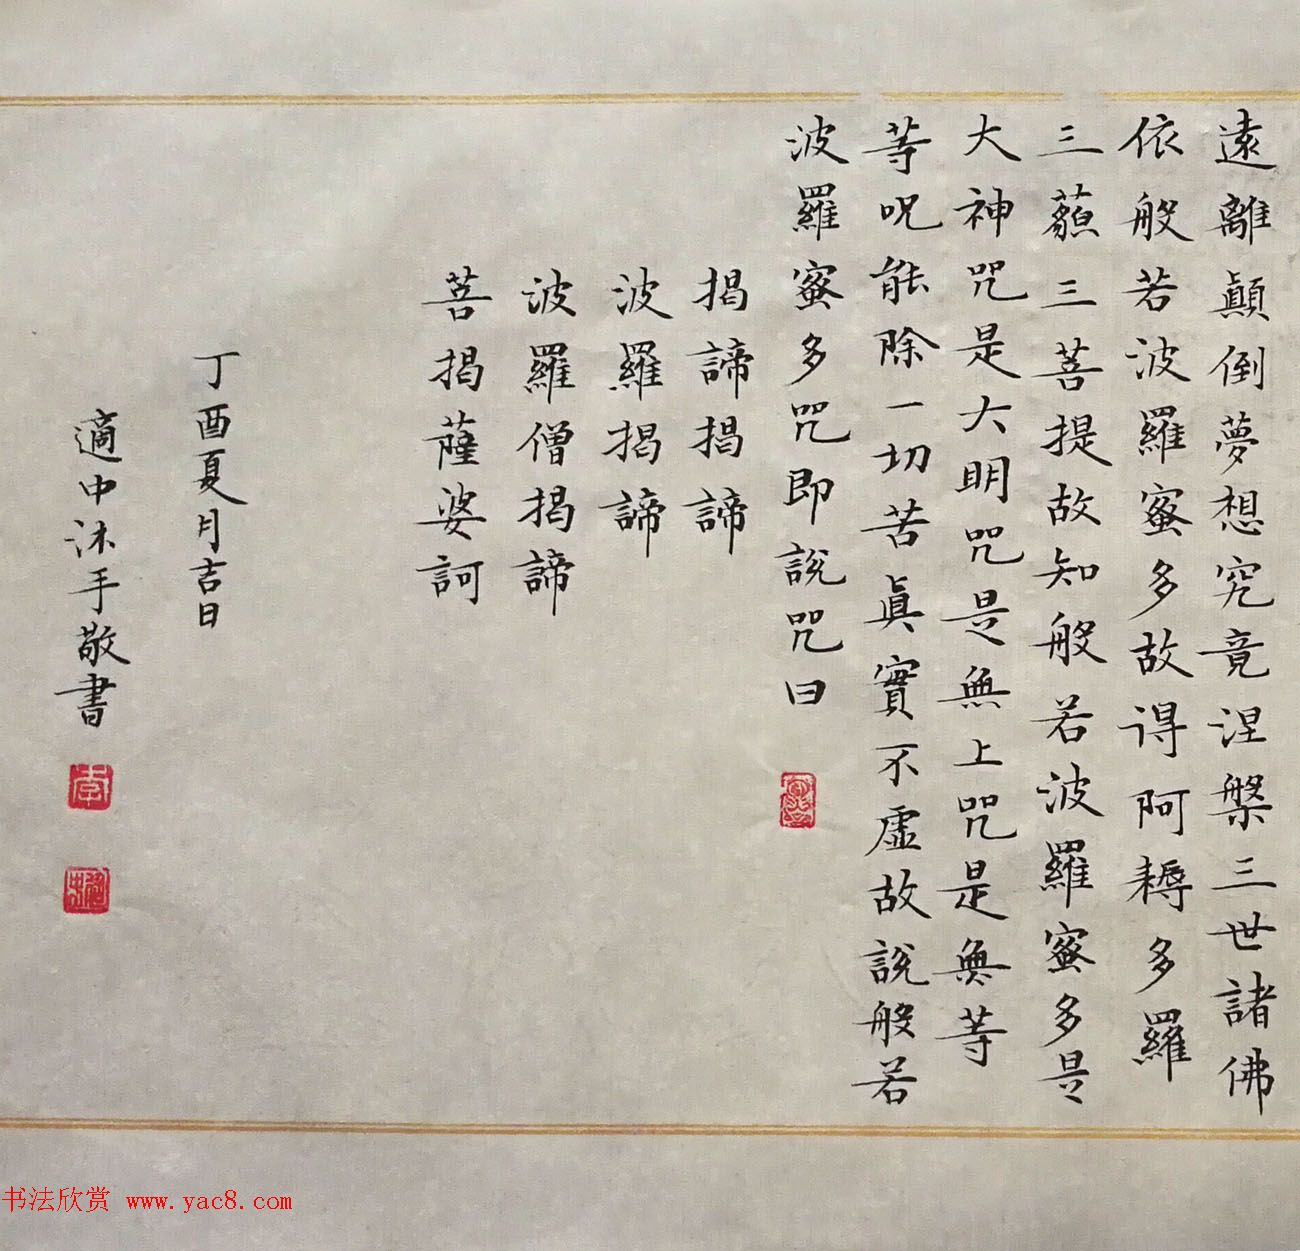 遠離顛倒夢想究竟涅槃三世諸佛
依般若波羅蜜多故得阿耨多羅
三藐三菩提故知般若波羅蜜多是
大神咒是大明咒是無上咒是無等
等呪能除一切苦眞實不虛故說般若
波羅蜜多咒即說咒曰
揭諦揭諦
波羅揭諦
波羅僧揭諦
菩揭薩婆訶
丁酉夏月吉日
適中沐手敬書
书法欣赏 www.yac8.com